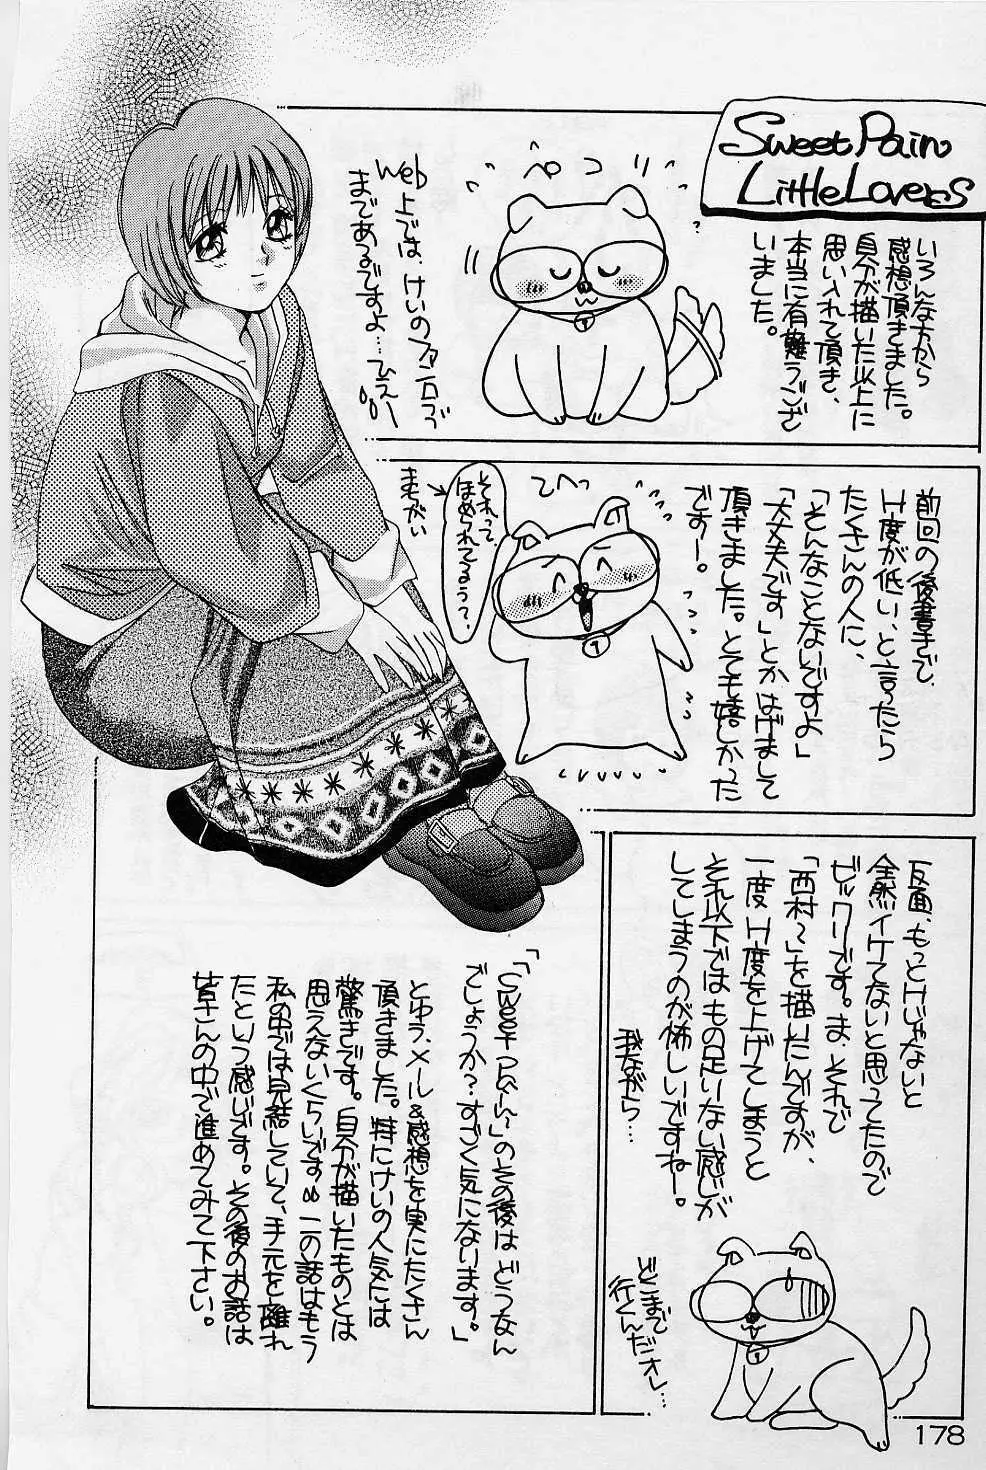 Sweet Pain
Little Lovers
いろんな方から
感想頂きました。
自分が描いた以上に
思い入れて頂き、
本当に有難うござ
いました。
ペコリ
Web上では、けいのファン石づ
まであるですよ…ひえー
前回の後書きで、
H度が低い、と言ったら
たくさんの人に、
「そんなことないですよ」
「大丈夫です」とかはげまして
頂きました。とても嬉しかった
です！。
てへっ
それって、
ほめられてるぅ?、
まちがい
反面、もっとHじゃないと
全然イケてないと思ってたので
ビックリです。ま、それで
「西村〜」を描いたんですが、
一度H度を上げてしまうと
それ以下ではもの足りない感じが
してしまうのが怖しいですねー。
我ながら…
どこまで
行くんだオレ…
「「Sweetpain〜」のその後はどうなん
でしょうか？すごく気になります。」
とゆう、メール&感想を実にたくさん
頂きました。特にけいの人気には
驚きです。自分が描いたものとは
思えないくらいです。この話はもう
私の中では完結していて、手元を離れ
たという感じです。その後のお話は
皆さんの中で進めてみて下さい。
178